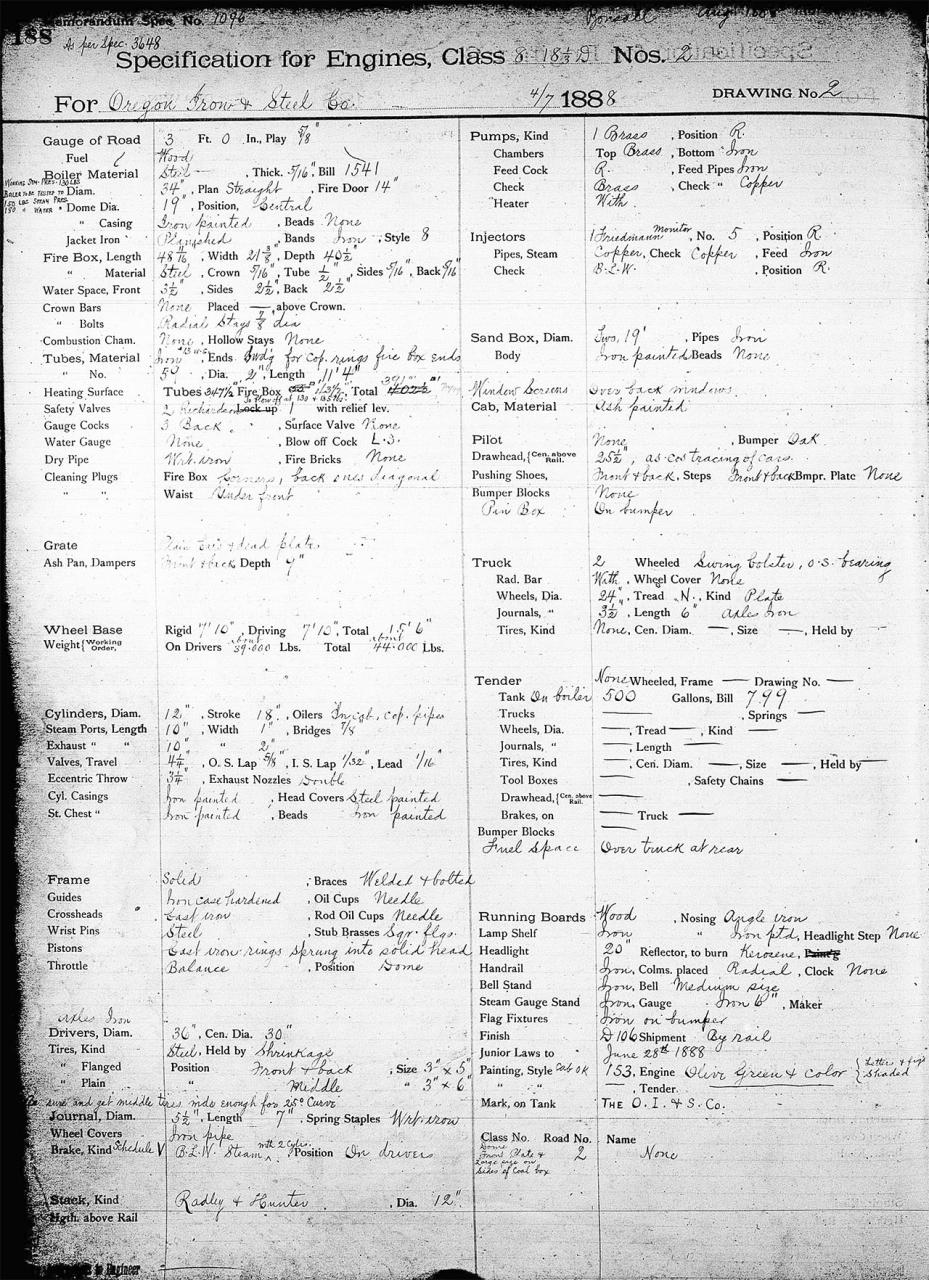 Memorandum Spec. No. 1096
188
As per Spec. 3648
Specification for Engines, Class 8-18⅓ D Nos. 2
For Oregon Iron & Steel Co. 4/7 1888 DRAWING No. 2
Gauge of Road 3 Ft. 0 In., Play 5/8"
Fuel Wood
Boiler Material Steel, Thick. 5/16", Bill 1541
WORKING STM. PRES. 130 LBS
BOILER TO BE TESTED TO
150 LBS STEAM PRES.
180 " WATER "
" Diam. 34", Plan Straight, Fire Door 14"
" Dome Dia. 19", Position, Central
" Casing Iron painted, Beads None
Jacket Iron Planished, Bands Iron, Style 8
Fire Box, Length 48 7/16, Width 21 3/8, Depth 40½"
" Material Steel, Crown 5/16", Tube ½", Sides 5/16", Back 5/16"
Water Space, Front 3½", Sides 2½", Back 2½"
Crown Bars None Placed — above Crown.
" Bolts Radial Stays 7/8" dia
Combustion Cham. None, Hollow Stays None
Tubes, Material Iron, Ends Swdg for cop. rings fire box ends
" No. 59, Dia. 2", Length 11' 4"
Heating Surface Tubes 347½ Fire Box Total
Safety Valves 2 Richardson Lock up 1 with relief lev.
Gauge Cocks 3 Back, Surface Valve None
Water Gauge None, Blow off Cock L.S.
Dry Pipe Wrt. iron, Fire Bricks None
Cleaning Plugs Fire Box Corners, back ones diagonal
" " Waist Under front
Grate Plain bars & dead plate
Ash Pan, Dampers Front & back Depth 9"
Wheel Base Rigid 7' 10", Driving 7' 10", Total 15' 6"
Weight {Working Order, On Drivers about 39.000 Lbs. Total about 44.000 Lbs.
Cylinders, Diam. 12", Stroke 18", Oilers In cab, cop. pipes
Steam Ports, Length 10", Width 1", Bridges 7/8
Exhaust " " 10" " 2"
Valves, Travel 4¼", O. S. Lap 5/8", I. S. Lap 1/32", Lead 1/16"
Eccentric Throw 3¼", Exhaust Nozzles Double
Cyl. Casings Iron painted, Head Covers Steel painted
St. Chest " Iron painted, Beads Iron painted
Frame Solid, Braces Welded & bolted
Guides Iron case hardened, Oil Cups Needle
Crossheads Cast iron, Rod Oil Cups Needle
Wrist Pins Steel, Stub Brasses Sqr. flgs.
Pistons Cast iron rings sprung into solid head
Throttle Balance, Position Dome
Axles Iron
Drivers, Diam. 36", Cen. Dia. 30"
Tires, Kind Steel, Held by Shrinkage
" Flanged Position Front & back, Size 3" x 5"
" Plain " Middle " 3" x 6"
Be sure and get middle tires wide enough for 25° Curve
Journal, Diam. 5½", Length 7", Spring Staples Wrt. iron
Wheel Covers Iron pipe
Brake, Kind Schedule V B.L.W. Steam with 2 Cylrs., Position On drivers
Stack, Kind Radley & Hunter, Dia. 12"
Hgth. above Rail
to Engineer
Pumps, Kind 1 Brass, Position R.
Chambers Top Brass, Bottom Iron
Feed Cock R., Feed Pipes Iron
Check Brass, Check " Copper
Heater With
Injectors 1 Friedmann Monitor, No. 5, Position R
Pipes, Steam Copper, Check Copper, Feed Iron
Check B.L.W., Position R.
Sand Box, Diam. Two, 19", Pipes Iron
Body Iron painted Beads None
Window Screens Over back windows
Cab, Material Ash painted
Pilot None, Bumper Oak
Drawhead, {Cen. above Rail. 25½", as cos tracing of cars.
Pushing Shoes, Front & back, Steps Front & back Bmpr. Plate None
Bumper Blocks None
Pin Box On bumper
Truck 2 Wheeled Swing bolster, o.s. bearing
Rad. Bar With, Wheel Cover None
Wheels, Dia. 24", Tread N., Kind Plate
Journals, " 3½", Length 6" Axles Iron
Tires, Kind None, Cen. Diam. —, Size —, Held by —
Tender None Wheeled, Frame — Drawing No. —
Tank On boiler 500 Gallons, Bill 799
Trucks —, Springs —
Wheels, Dia. —, Tread —, Kind —
Journals, " —, Length —
Tires, Kind —, Cen. Diam. —, Size —, Held by —
Tool Boxes —, Safety Chains —
Drawhead, {Cen. above Rail. —
Brakes, on — Truck —
Bumper Blocks —
Fuel Space Over truck at rear
Running Boards Wood, Nosing Angle iron
Lamp Shelf Iron " Iron ptd, Headlight Step None
Headlight 20" Reflector, to burn Kerozene, Paint'g
Handrail Iron, Colms. placed Radial, Clock None
Bell Stand Iron, Bell Medium size
Steam Gauge Stand Iron, Gauge Iron 6", Maker
Flag Fixtures Iron on bumper
Finish D 106 Shipment By rail
Junior Laws to June 28th 1888
Painting, Style Cab OK 153, Engine Olive Green & color {Letter & figs Shaded
" " , Tender
Mark, on Tank THE O. I. & S. Co.
Class No. Road No. Name
Dome
Front Plate & 2 None
Large size on
sides of coal box